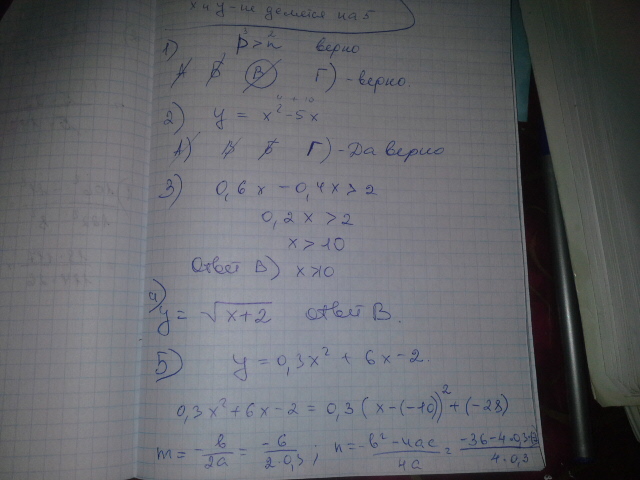 x и y - не делится на 5
1) p > n верно
А Б В Г) - верно.
2) y = x² - 5x
А) Б В Г) - Да верно
3) 0,6x - 0,4x > 2
0,2x > 2
x > 10
Ответ В) x > 10
y = √x+2 Ответ В.
5) y = 0,3x² + 6x - 2.
0,3x² + 6x - 2 = 0,3(x - (-10))² + (-28)
m = -b/2a = -6/2·0,3 ; n = -b² - 4ac/4a = -36 - 4·0,3·/4·0,3